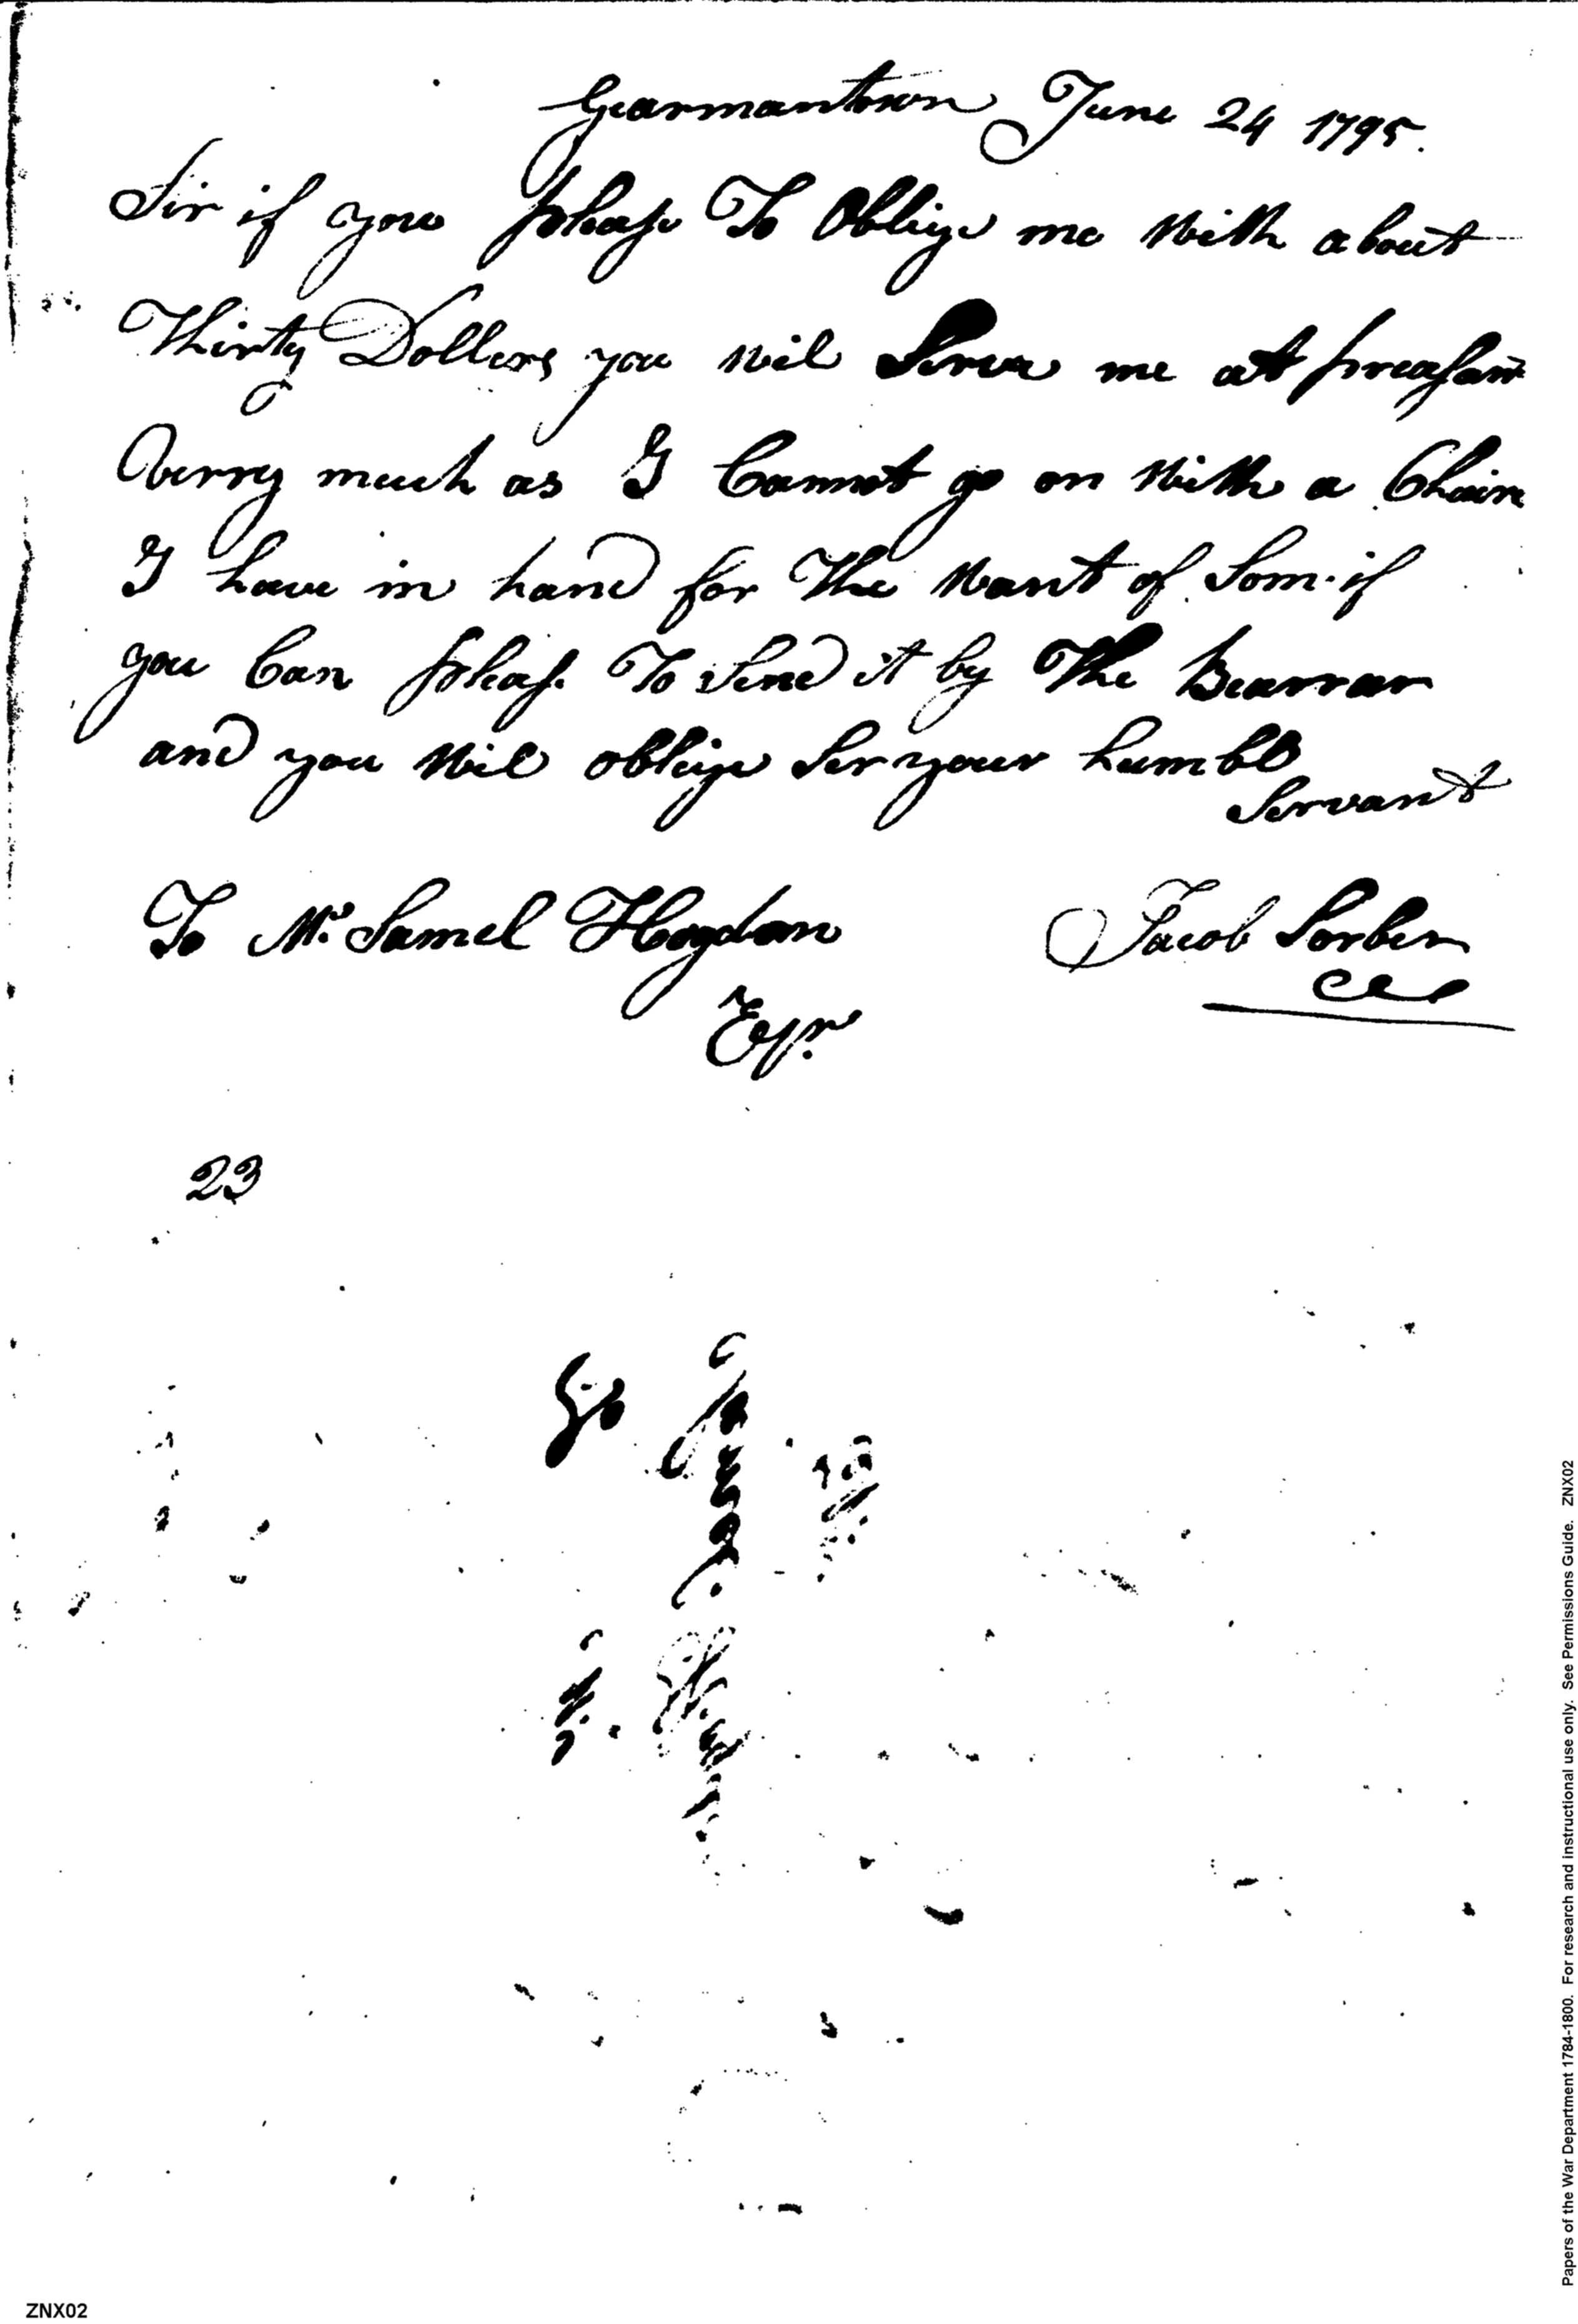 Gearmantown June 24 1795.
Sir if you please To Obliege me With about
Thirty Dollers you Wil Serve me at preasant
Verry much as I Cannot go on With a Chair
I have in hand for The Want of Som. if
you Can pleas. To Send it by The Bearrar
and you Wil obliege Ser your humbl
Servant
To Mr. Samel Hogdon Jacob Sorber
Esqr.
23
Papers of the War Department 1784-1800. For research and instructional use only. See Permissions Guide. ZNX02
ZNX02